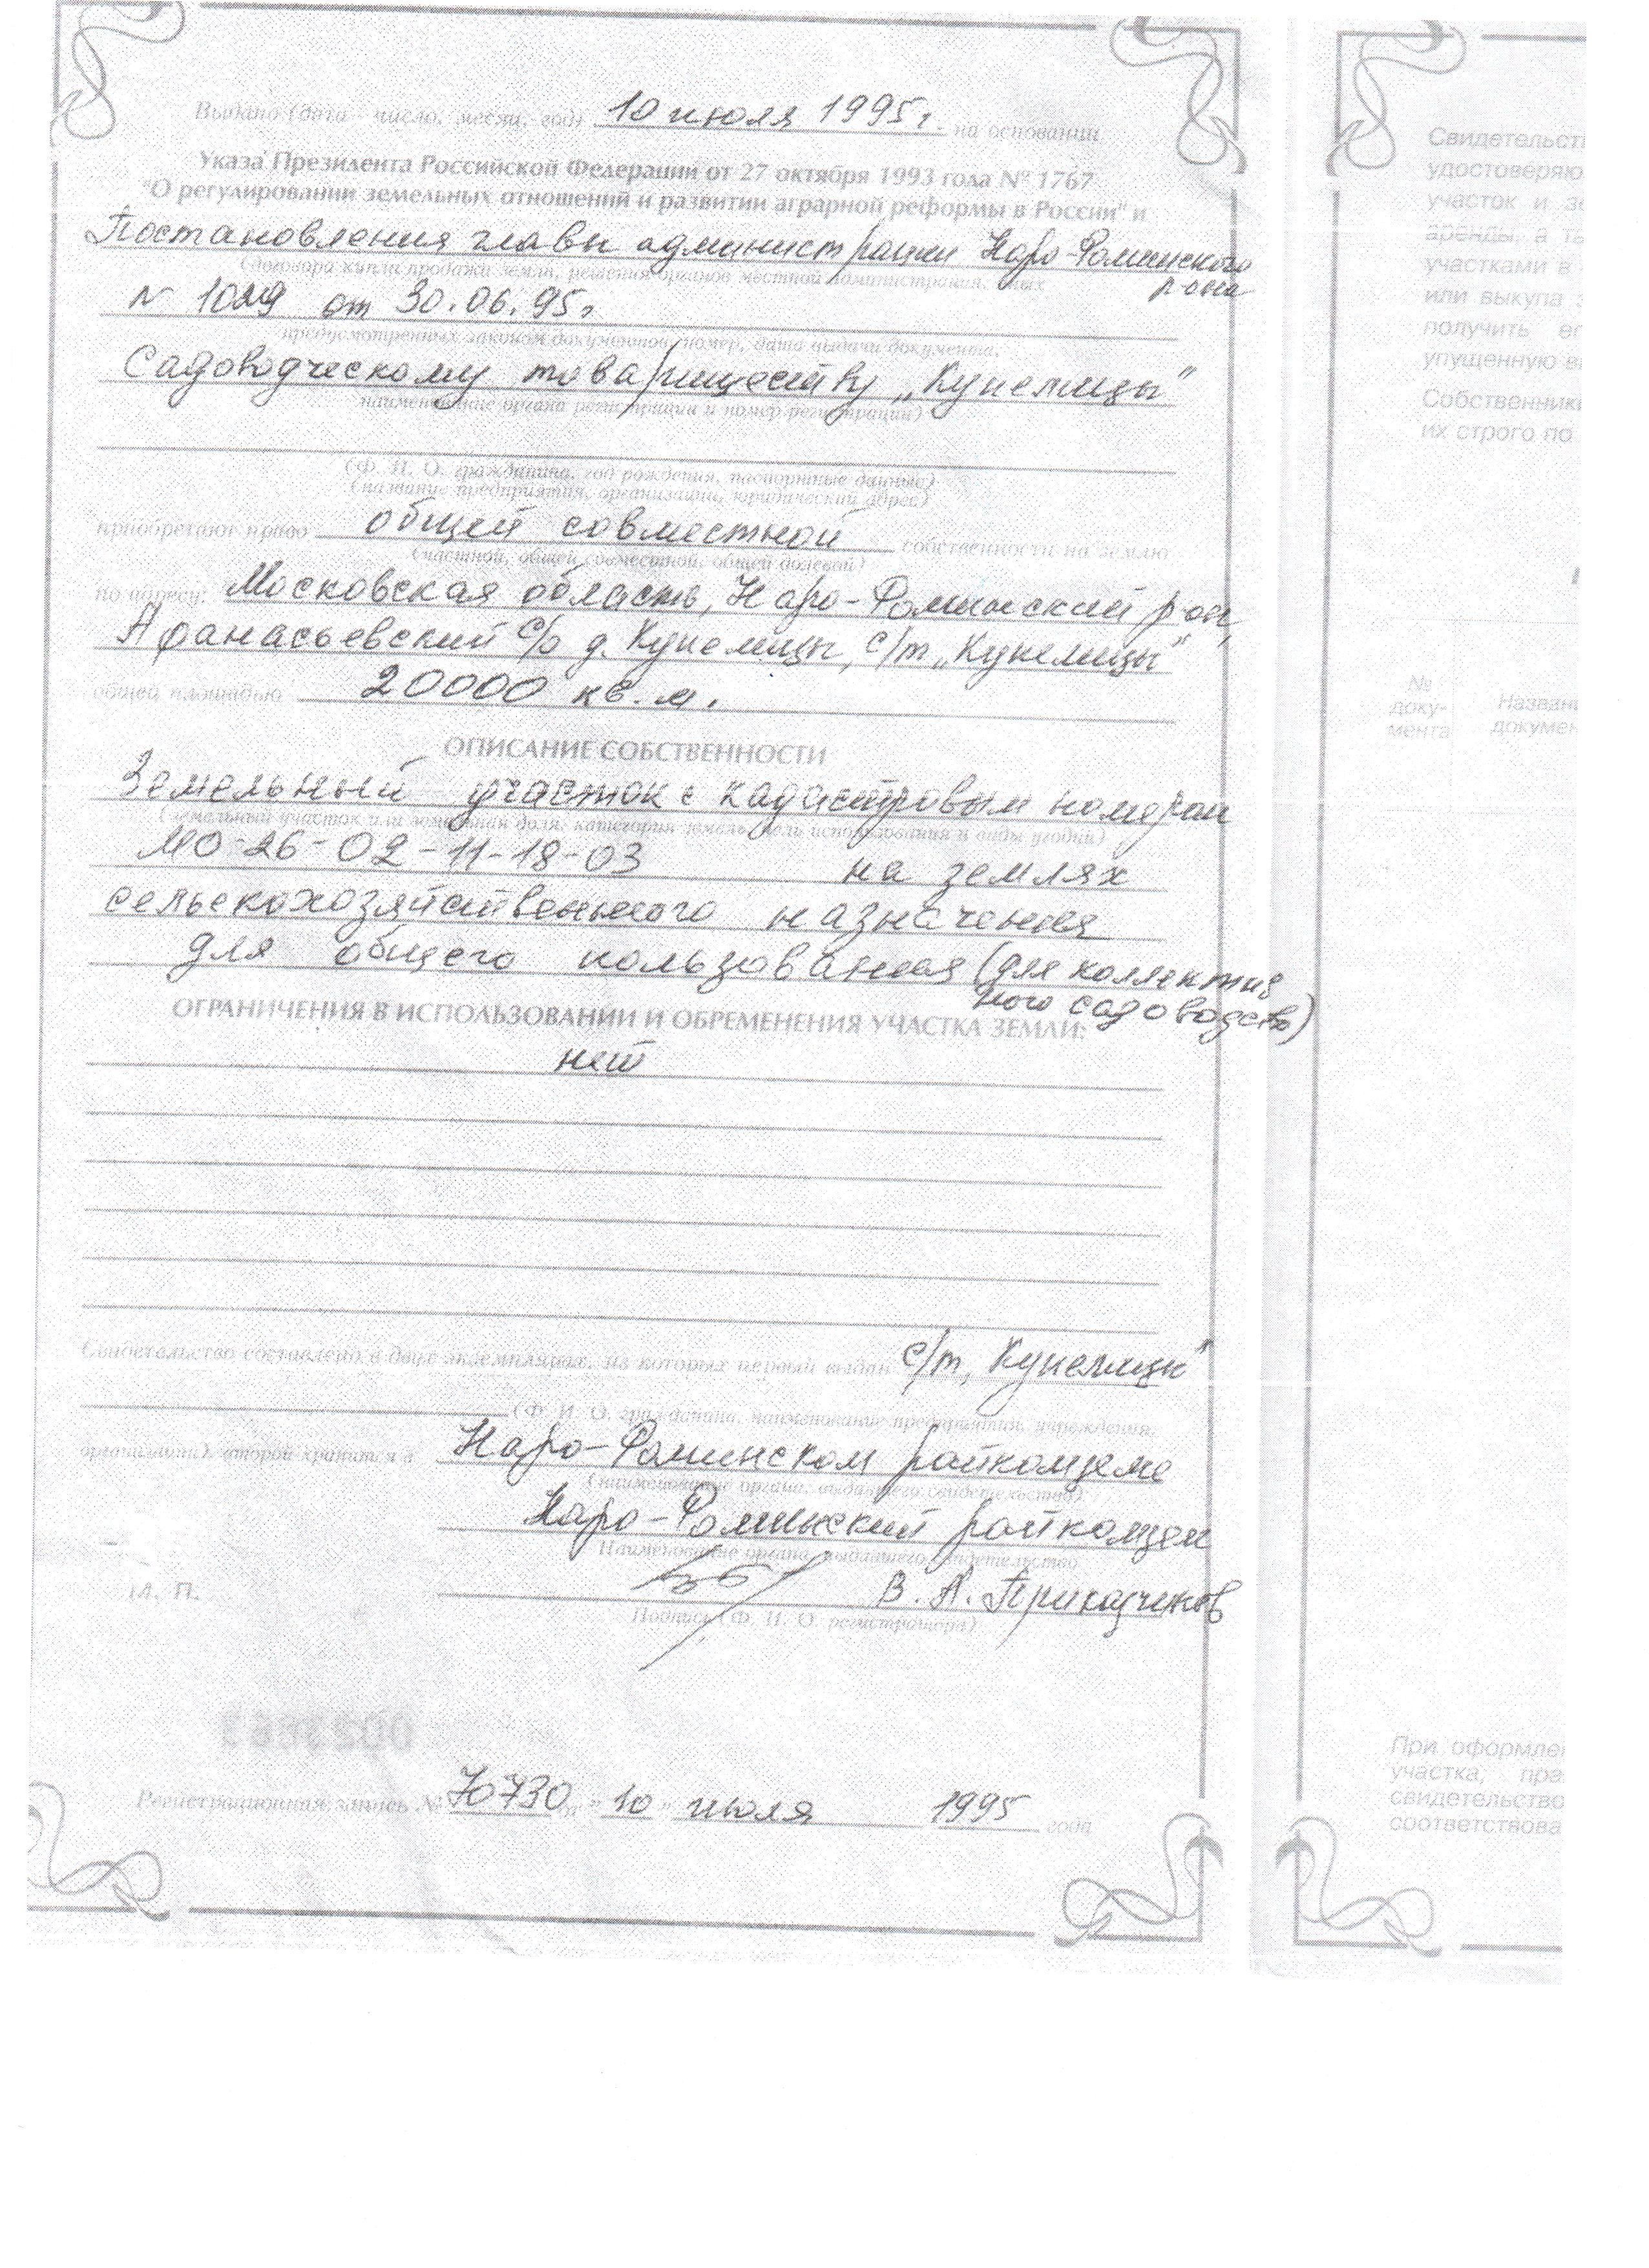 Выдано (дата - число, месяц, год) 10 июля 1995г. на основании
Указа Президента Российской Федерации от 27 октября 1993 года № 1767
"О регулировании земельных отношений и развитии аграрной реформы в России" и
Постановления главы администрации Наро-Фоминского
(договора купли продажи земли, решения органов местной администрации, иных
р-она
N 1029 от 30.06.95г
предусмотренных законом документов, номер, дата выдачи документа,
Садоводческому товариществу „Кунелицы"
наименование органа регистрации и номер регистрации)
(Ф. И. О. гражданина, год рождения, паспортные данные)
(название предприятия, организации, юридический адрес)
приобретают право общей совместной собственности на землю
(частной, общей совместной, общей долевой)
по адресу: Московская область, Наро-Фоминский р-он,
Афанасьевский с/о д. Кунелицы, с/т „Кунелицы"
общей площадью 20000 кв.м.
ОПИСАНИЕ СОБСТВЕННОСТИ
Земельный участок с кадастровым номером
(земельный участок или земельная доля, категория земель, цель использования и виды угодий)
МО-26-02-11-18-03 на землях
сельскохозяйственного назначения
для общего пользования (для коллектив
ного садоводства)
ОГРАНИЧЕНИЯ В ИСПОЛЬЗОВАНИИ И ОБРЕМЕНЕНИЯ УЧАСТКА ЗЕМЛИ:
нет
Свидетельство составлено в двух экземплярах, из которых первый выдан с/т „Кунелицы"
(Ф. И. О. гражданина, наименование предприятия, учреждения,
организации), второй хранится в Наро-Фоминском райкомземе
(наименование органа, выдавшего свидетельство)
Наро-Фоминский райкомзем
Наименование органа, выдавшего свидетельство
В. А.
М. П.
Подпись (Ф. И. О. регистратора)
Регистрационная запись № 70730 от "10" июля 1995 года
Свидетельст
удостоверяю
участок и зе
аренды, а та
участками в
или выкупа з
получить ег
упущенную вы
Собственники
их строго по
№
доку-
мента
Назван
докумен
При оформле
участка, пра
свидетельство
соответствова